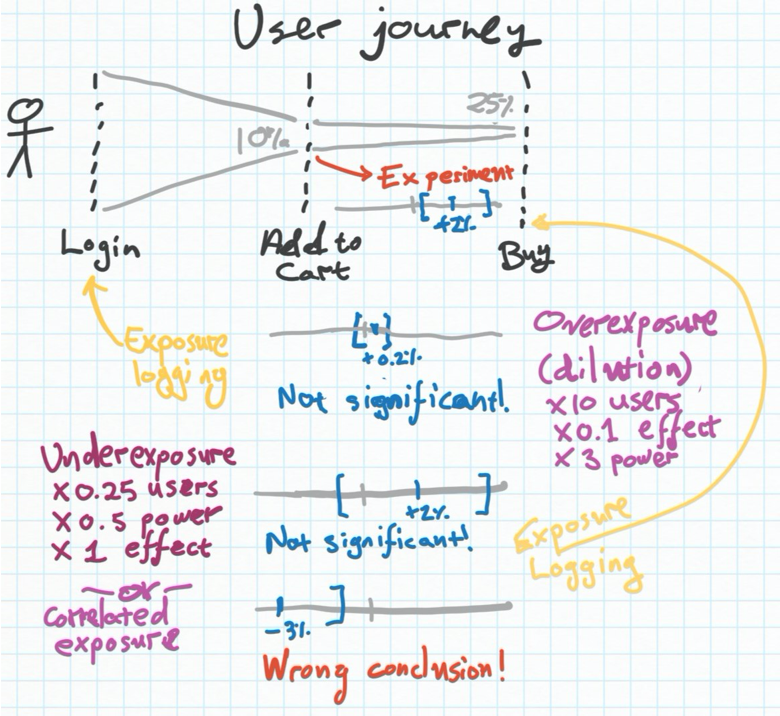 User journey
25%
10%
Experiment
[ ]
+2%
Login
Add to
Cart
Buy
Exposure
logging
[ ]
+0.2%
Not significant!
Overexposure
(dilution)
x10 users
x0.1 effect
x3 power
Underexposure
x0.25 users
x0.5 power
x1 effect
[ ]
+2%
Not significant!
Exposure
Logging
- or -
Correlated
exposure
]
-3%
Wrong conclusion!